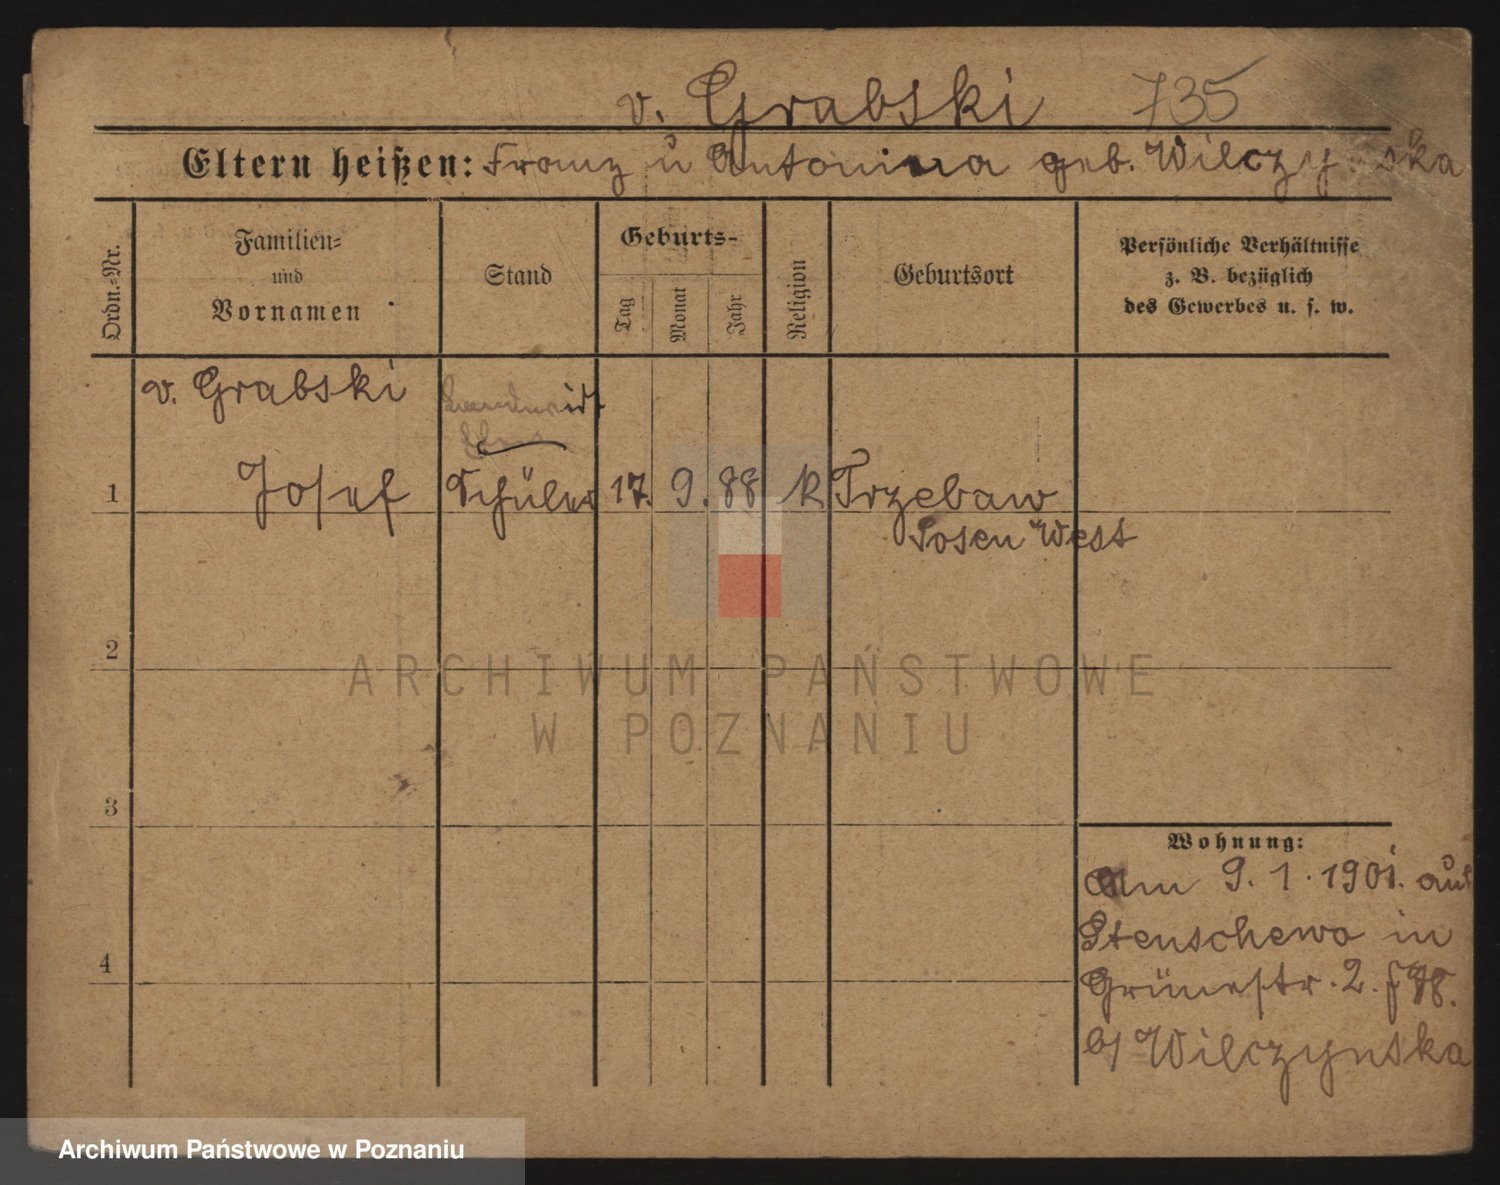 v. Grabski 735
Eltern heißen: Franz u Antonina geb. Wilczyńska
Ordn.-Nr.
Familien-
und
Vornamen
Stand
Geburts-
Tag
Monat
Jahr
Religion
Geburtsort
Persönliche Verhältnisse
z. B. bezüglich
des Gewerbes u. s. w.
v. Grabski
1 Josef Schüler 17. 9. 88 k Trzebaw
Posen West
2
3
4
Wohnung:
Am 9. 1. 1901. aus
Stenschewo in
Grünestr. 2.
b/ Wilczynska
ARCHIWUM PAŃSTWOWE
W POZNANIU
Archiwum Państwowe w Poznaniu